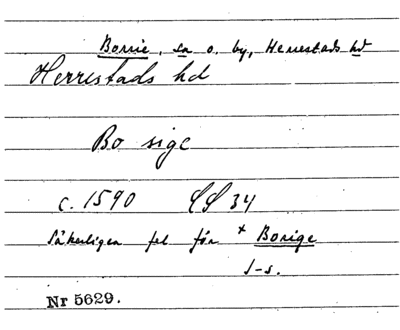 Borrie, sa o. by, Herrestads hd
Herrestads hd
Bo sige
c. 1590 LL 34
Säkerligen fel för * Borige
J-s.
Nr 5629.